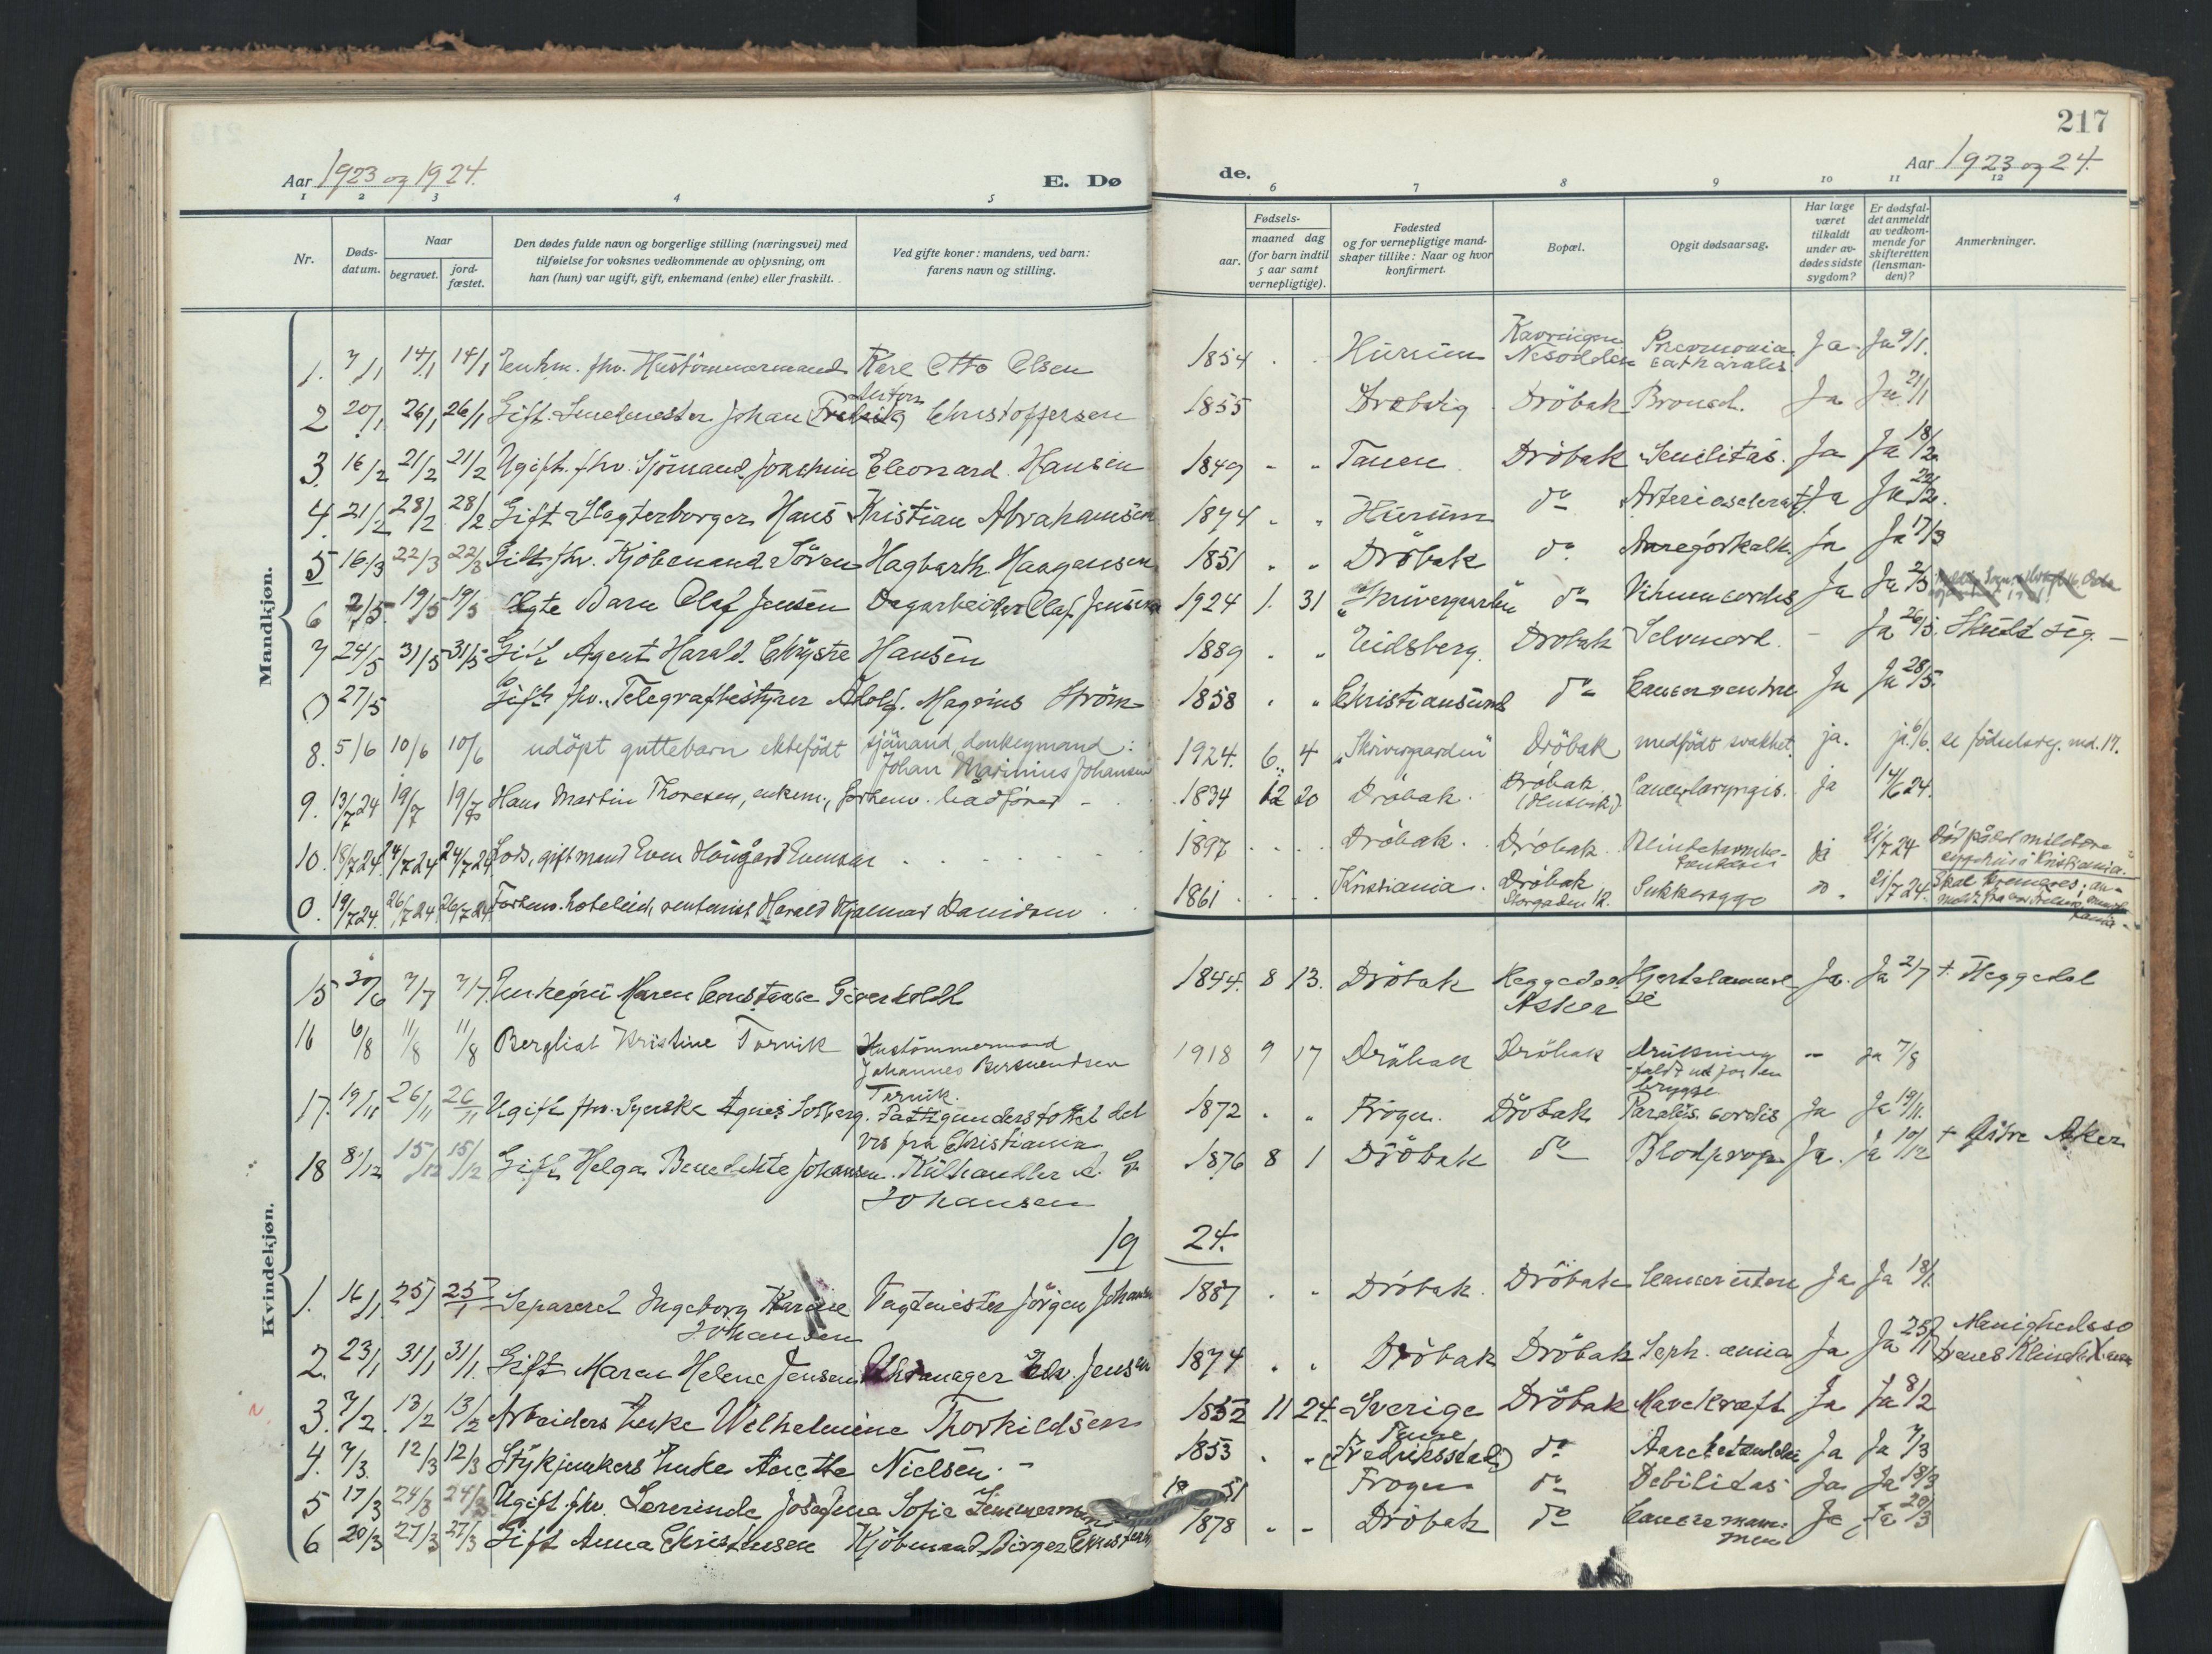 217
Aar 1923 og 1924.
E. Dø
de.
Aar 1923 og 24.
1 2 3 4 5 6 7 8 9 10 11 12
Nr.
Døds-
datum.
Naar
begravet.
jord-
fæstet.
Den dødes fulde navn og borgerlige stilling (næringsvei) med
tilføielse for voksnes vedkommende av oplysning, om
han (hun) var ugift, gift, enkemand (enke) eller fraskilt.
Ved gifte koner: mandens, ved barn:
farens navn og stilling.
Fødsels-
aar.
maaned dag
(for barn indtil
5 aar samt
vernepligtige).
Fødested
og for vernepligtige mand-
skaper tillike: Naar og hvor
konfirmert.
Bopæl.
Opgit dødsaarsag.
Har læge
været
tilkaldt
under av-
dødes sidste
sygdom?
Er dødsfal-
det anmeldt
av vedkom-
mende for
skifteretten
(lensman-
den)?
Anmerkninger.
Mandkjøn.
1. 7/1 14/1 14/1 Enkm. fhv. Hustömmermand Karl Otto Olsen 1854 Hurum Kavringen Nesodden Pneumonia catharalis. Ja Ja 9/1.
2 20/1 26/1 26/1 Gift. Smedmester Johan Fredrik Anton Christoffersen 1855 Dröbak Bronch. Ja Ja 21/1
3. 16/2 21/2 21/2 Ugift. fhv. Sjömand Joachim Eleonard Hansen 1849 " " Dröbak Senilitas. Ja Ja 18/2.
4. 21/2 28/2 28/2 Gift Slagterborger Hans Kristian Abrahamsen 1844 " " Hurum do Ja Ja 22/2.
5 16/3 22/3 22/3 Gift fhv. Kjöbmand Sören Hagbarth Haagensen 1851 " " Dröbak do Aareforkalk. Ja Ja 17/3
6 2/5. 19/5 19/5 Ægte Barn Olaf Jensen Dagarbeider Olaf Jensen 1924 1. 31 "Skrivergaarden do Vitium cordis Ja Ja 2/5
7 24/5 31/5 31/5 Gift Agent Harald Chrystre Hansen 1889 " " Eidsberg. Dröbak Selvmord. - Ja 26/5. Skudt sig. -
0 27/5 Gift fhv. Telegrafbestyrer Adolf. Magnus Ström 1858 " " Christiansund do Cancer ventric Ja Ja 28/5.
8. 5/6 10/6 10/6 udöpt guttebarn ektefödt sjömand, donkeymand: Johan Marinius Johansen 1924. 6. 4 "Skrivergaarden" Dröbak medfödt svakhet. ja. ja. 6/6. se födselsreg. md. 17.
9. 13/7 24 19/7 19/7 Hans Martin Thoresen, enkem., forhenv. baadförer - 1834 12 20 Dröbak. Dröbak Cancer laryngis. ja 14/6 24.
10. 18/7 24. 24/7 24 24/7 24 Lods, gift mand Even Hougard Evensen 1897 Dröbak. Dröbak. Blindetarmbe- ja 21/7 24 Död paa
0. 19/7 24. 26/7 24. 26/7 24 Forhenv. hoteleier, rentenist Harald Hjalmar Davidsen 1861 Kristiania. Dröbak Storgaden 12. Sukkersyge 21/7 24. Skal kremeres;
Kvindekjøn.
15 30/6 7/7 7/7. Enkefru Maren Constanse Geverholdt 1844. 8 13. Dröbak Heggedal Asker Hjertelammel se Ja. Ja 2/7 †. Heggedal
16 6/8 11/8 11/8 Bergliot Kristine Torvik Hustömmermand Johannes Berntsen Torvik. 1918 9 17 Dröbak Dröbak Drukning -faldt ut for en brygge - ja 7/8
17. 19/11 26/11 26/11 Ugift fhv. Syerske Agnes Solberg. Fattigunderstöttet del vis fra Christiania 1872 " " Frogn. Dröbak Paralys. cordis Ja Ja 19/11.
18 8/12 15/12 15/12 Gift Helga Benedikte Johansen. Kulhandler A. G. Johansen 1876 8 1 Dröbak do Blodprop. Ja. Ja 10/12 † Östre Aker
19 24.
1. 16/1 25/1 25/1 Separeret Ingeborg Karine Johansen Vagtmester Jörgen Johansen 1887 " " Dröbak. Dröbak Cancer uteri Ja Ja 18/1.
2. 23/1 31/1 31/1. Gift Maren Helene Jensen Uhrmager Edv. Jensen 1874 " " Dröbak Dröbak Ja Ja 25/1 Menighedssö
3. 7/2. 13/2 13/2 Arbeiders Enke Welhelmine Thorkildsen 1852 11 24. Sverige Dröbak Mavekræft Ja Ja 8/2
4. 7/3. 12/3 12/3 Stykjunkers Enke Anette Nielsen. - 1853 " " (Fredriksstad) do Ja Ja 7/3
5 17/3 24/3 24/3 Ugift fhv. Lærerinde Josefine Sofie Zimmermann 1851 Frogn do Debilitas Ja Ja 18/3
6 20/3 27/3 27/3 Gift Anna Christensen Kjöbmand Birger Christensen 1878 " " Dröbak do Cancer mammen Ja Ja 20/3